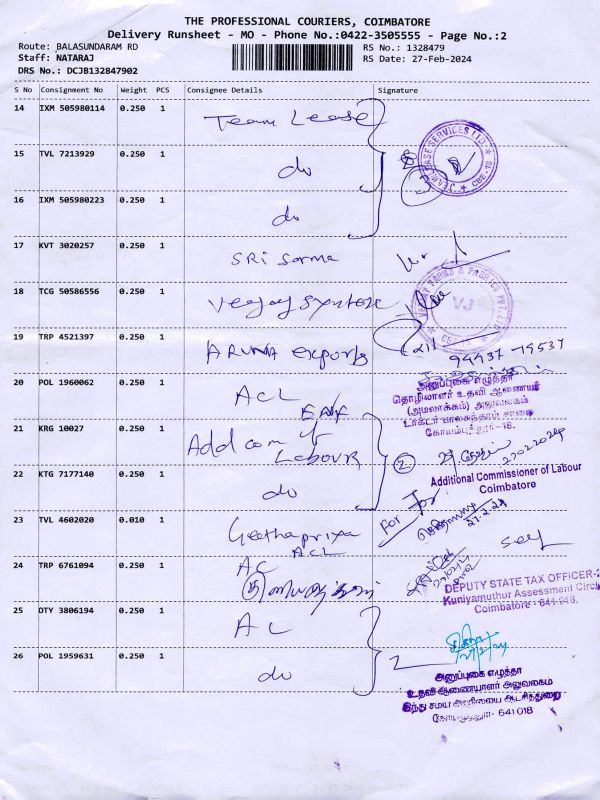 THE PROFESSIONAL COURIERS, COIMBATORE
Delivery Runsheet - MO - Phone No.:0422-3505555 - Page No.:2
Route: BALASUNDARAM RD
RS No.: 1328479
Staff: NATARAJ
RS Date: 27-Feb-2024
DRS No.: DCJB132847902
S No Consignment No Weight PCS Consignee Details Signature
14 IXM 505980114 0.250 1 Team Lease
15 TVL 7213929 0.250 1 do
TEAM LEASE SERVICES LTD. CBE-18
16 IXM 505980223 0.250 1 do
17 KVT 3020257 0.250 1 SRI Sarma
18 TCG 50586556 0.250 1 Veejay Syntex
VJ
19 TRP 4521397 0.250 1 ARUNA exports
94437 79537
20 POL 1960062 0.250 1 ACL
அனுப்புகை எழுத்தர்
தொழிலாளர் உதவி ஆணையர்
(அமலாக்கம்) அலுவலகம்
டாக்டர் பாலசுந்தரம் சாலை
கோயம்புத்தூர்-18.
21 KRG 10027 0.250 1 Add com
Labour
22 KTG 7177140 0.250 1 do
2
Additional Commissioner of Labour
Coimbatore
For
27.2.24
23 TVL 4602020 0.010 1 Geethapriya
ACL
24 TRP 6761094 0.250 1 AC
DEPUTY STATE TAX OFFICER-2
Kuniyamuthur Assessment Circle
Coimbatore - 641 018.
25 DTY 3806194 0.250 1 AC
26 POL 1959631 0.250 1 do
அனுப்புகை எழுத்தர்
உதவி ஆணையாளர் அலுவலகம்
இந்து சமய அறநிலைய ஆட்சித்துறை
கோயம்புத்தூர் - 641 018